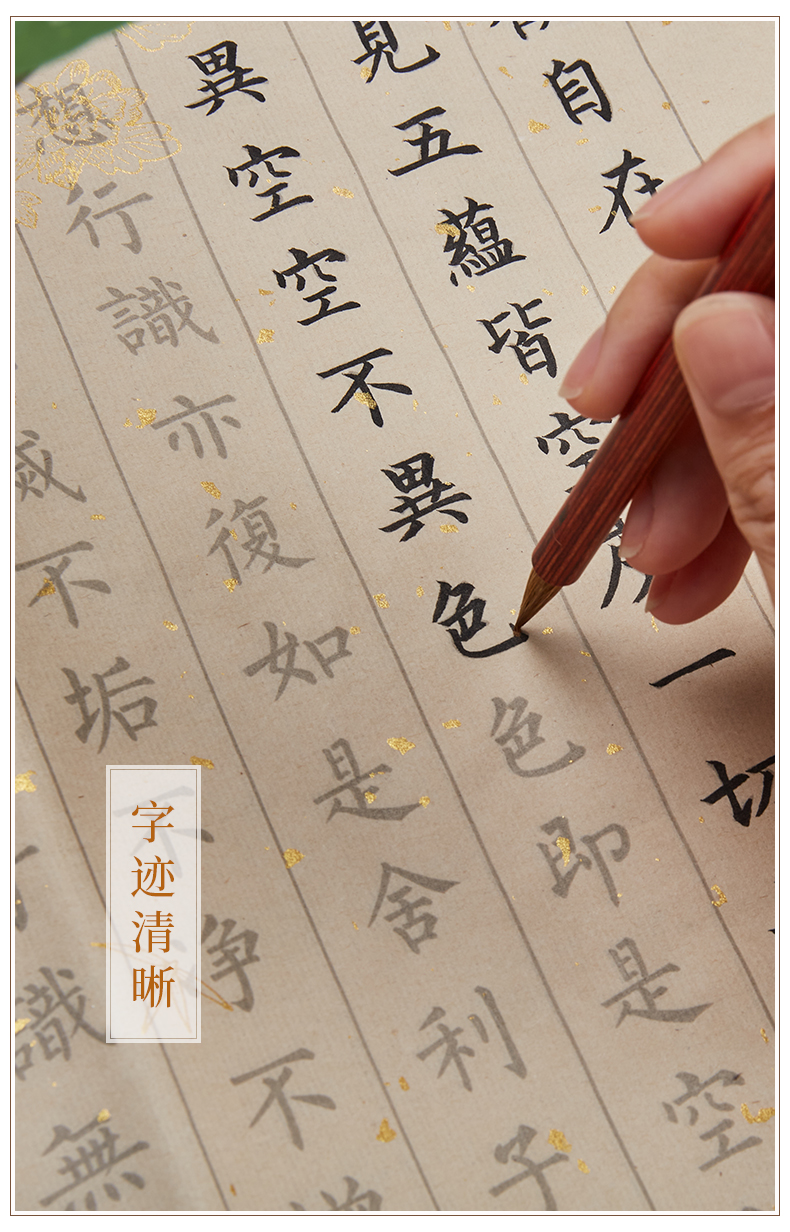 自在
見五蘊皆空度一切
異空空不異色色即是空
想行識亦復如是舍利子
滅不垢不淨不
識無
字迹清晰